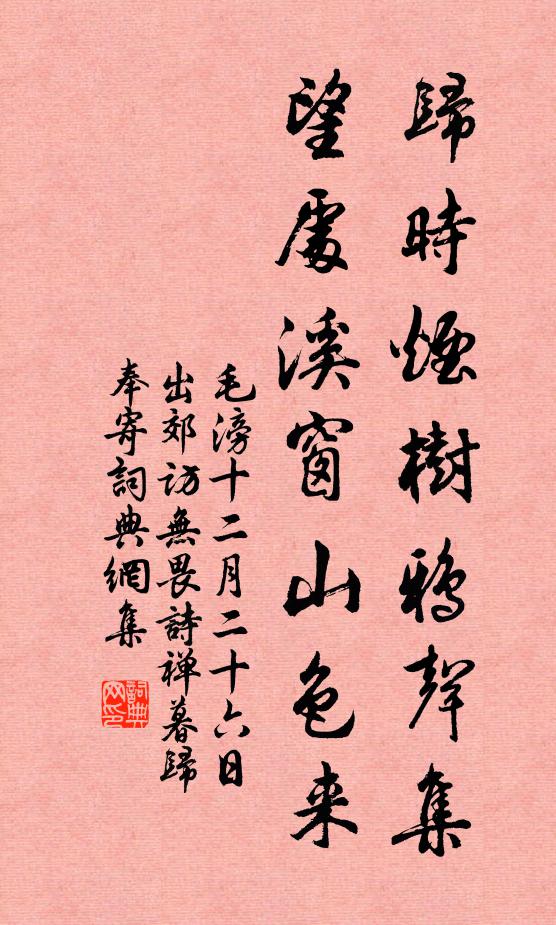 歸時煙樹鴉聲集
望處溪窗山色来
毛滂十二月二十六日
出郊访無畏詩禅暮歸
奉寄詞典網集
詞典网印